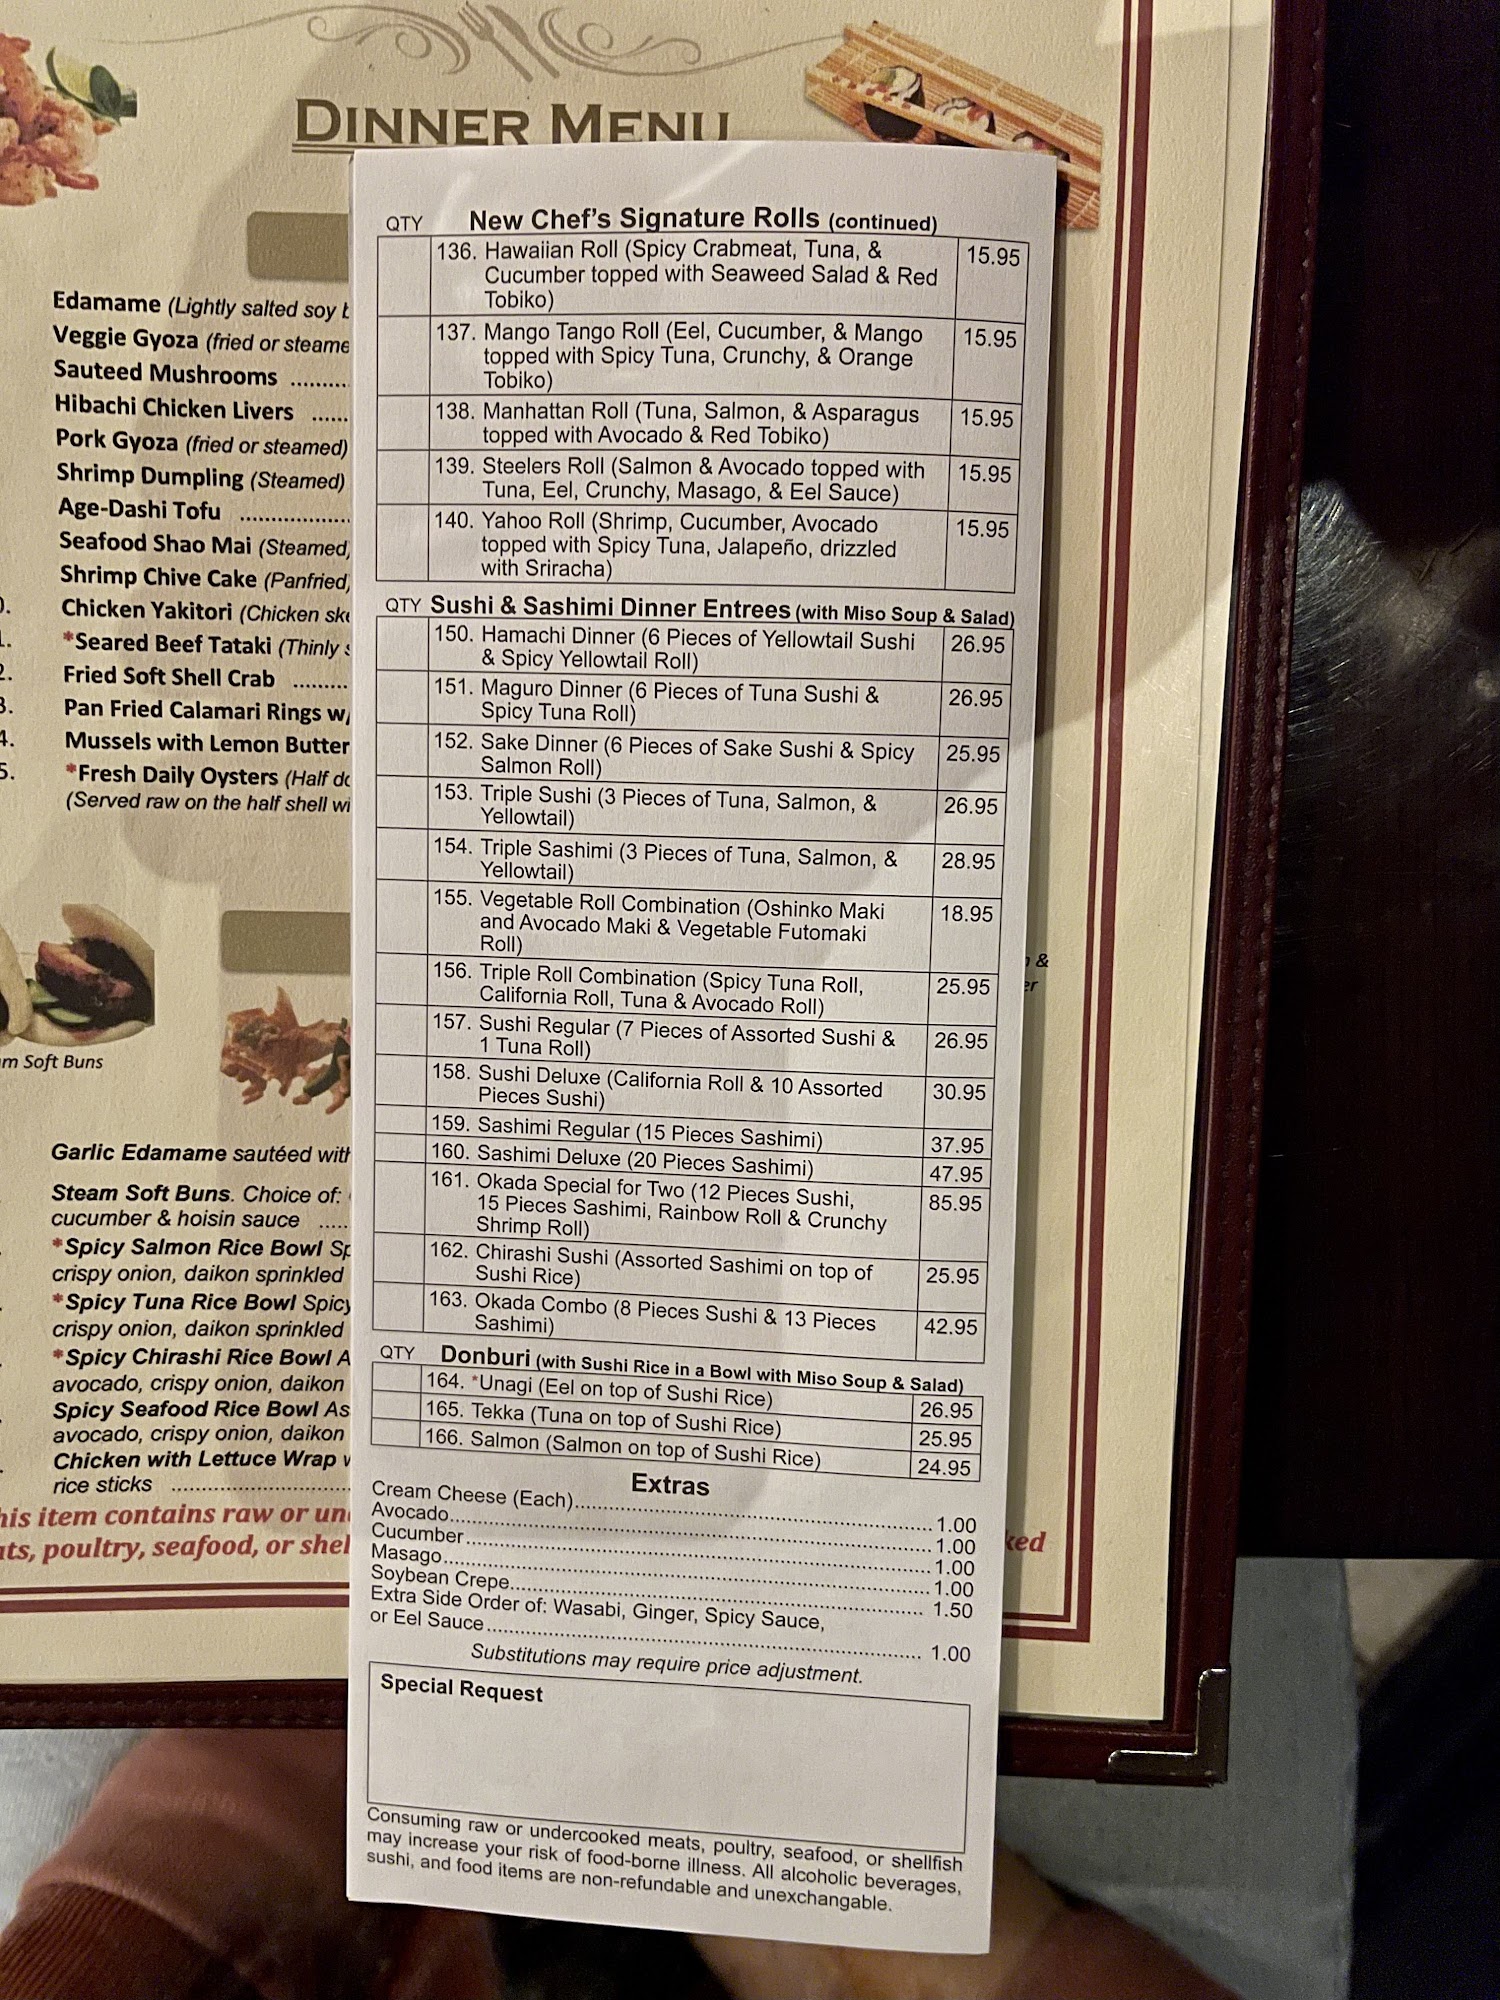 DINNER MENU
Edamame (Lightly salted soy
Veggie Gyoza (fried or steame
Sauteed Mushrooms ..........
Hibachi Chicken Livers ......
Pork Gyoza (fried or steamed)
Shrimp Dumpling (Steamed)
Age-Dashi Tofu ..................
Seafood Shao Mai (Steamed)
Shrimp Chive Cake (Panfried)
Chicken Yakitori (Chicken ske
*Seared Beef Tataki (Thinly s
2. Fried Soft Shell Crab .........
3. Pan Fried Calamari Rings w/
4. Mussels with Lemon Butter
5. *Fresh Daily Oysters (Half do
(Served raw on the half shell wi
m Soft Buns
Garlic Edamame sautéed with
Steam Soft Buns. Choice of:
cucumber & hoisin sauce .....
*Spicy Salmon Rice Bowl Sp
crispy onion, daikon sprinkled
*Spicy Tuna Rice Bowl Spicy
crispy onion, daikon sprinkled
*Spicy Chirashi Rice Bowl A
avocado, crispy onion, daikon
Spicy Seafood Rice Bowl As
avocado, crispy onion, daikon
Chicken with Lettuce Wrap
rice sticks ..............................
his item contains raw or un
ts, poultry, seafood, or shel
QTY New Chef's Signature Rolls (continued)
136. Hawaiian Roll (Spicy Crabmeat, Tuna, & 15.95
Cucumber topped with Seaweed Salad & Red
Tobiko)
137. Mango Tango Roll (Eel, Cucumber, & Mango 15.95
topped with Spicy Tuna, Crunchy, & Orange
Tobiko)
138. Manhattan Roll (Tuna, Salmon, & Asparagus 15.95
topped with Avocado & Red Tobiko)
139. Steelers Roll (Salmon & Avocado topped with 15.95
Tuna, Eel, Crunchy, Masago, & Eel Sauce)
140. Yahoo Roll (Shrimp, Cucumber, Avocado 15.95
topped with Spicy Tuna, Jalapeño, drizzled
with Sriracha)
QTY Sushi & Sashimi Dinner Entrees (with Miso Soup & Salad)
150. Hamachi Dinner (6 Pieces of Yellowtail Sushi 26.95
& Spicy Yellowtail Roll)
151. Maguro Dinner (6 Pieces of Tuna Sushi & 26.95
Spicy Tuna Roll)
152. Sake Dinner (6 Pieces of Sake Sushi & Spicy 25.95
Salmon Roll)
153. Triple Sushi (3 Pieces of Tuna, Salmon, & 26.95
Yellowtail)
154. Triple Sashimi (3 Pieces of Tuna, Salmon, & 28.95
Yellowtail)
155. Vegetable Roll Combination (Oshinko Maki 18.95
and Avocado Maki & Vegetable Futomaki
Roll)
156. Triple Roll Combination (Spicy Tuna Roll, 25.95
California Roll, Tuna & Avocado Roll)
157. Sushi Regular (7 Pieces of Assorted Sushi & 26.95
1 Tuna Roll)
158. Sushi Deluxe (California Roll & 10 Assorted 30.95
Pieces Sushi)
159. Sashimi Regular (15 Pieces Sashimi) 37.95
160. Sashimi Deluxe (20 Pieces Sashimi) 47.95
161. Okada Special for Two (12 Pieces Sushi, 85.95
15 Pieces Sashimi, Rainbow Roll & Crunchy
Shrimp Roll)
162. Chirashi Sushi (Assorted Sashimi on top of 25.95
Sushi Rice)
163. Okada Combo (8 Pieces Sushi & 13 Pieces 42.95
Sashimi)
QTY Donburi (with Sushi Rice in a Bowl with Miso Soup & Salad)
164. *Unagi (Eel on top of Sushi Rice) 26.95
165. Tekka (Tuna on top of Sushi Rice) 25.95
166. Salmon (Salmon on top of Sushi Rice) 24.95
Extras
Cream Cheese (Each)........ 1.00
Avocado........ 1.00
Cucumber........ 1.00
Masago........ 1.00
Soybean Crepe........ 1.50
Extra Side Order of: Wasabi, Ginger, Spicy Sauce,
or Eel Sauce........ 1.00
Substitutions may require price adjustment.
Special Request
Consuming raw or undercooked meats, poultry, seafood, or shellfish
may increase your risk of food-borne illness. All alcoholic beverages,
sushi, and food items are non-refundable and unexchangable.
&
er
ked